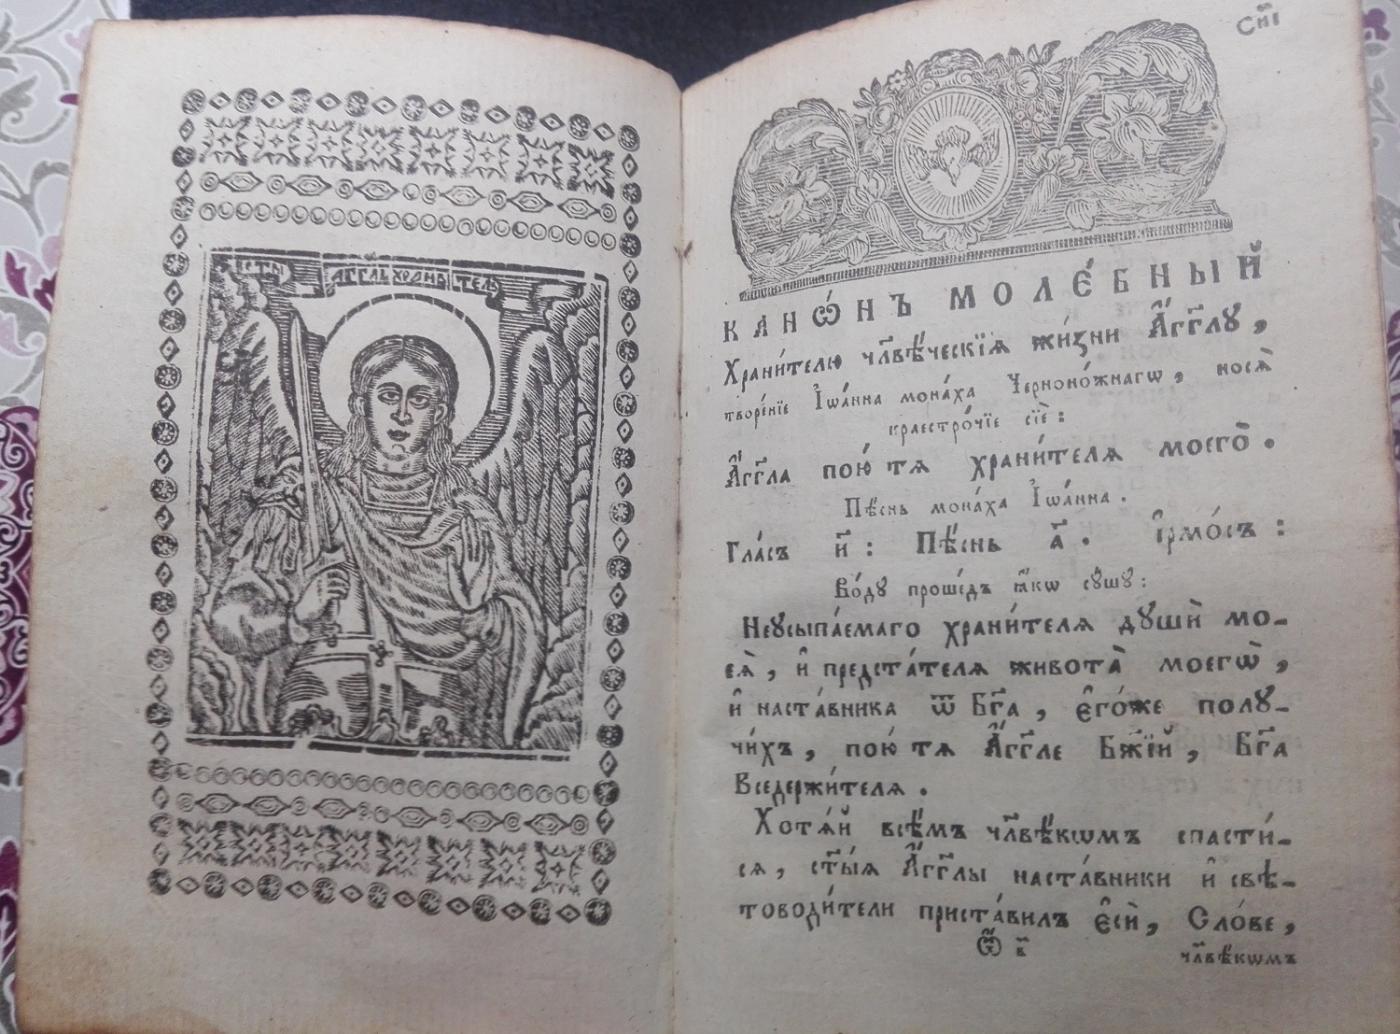 СТЫ АГГЛЬ ХРАНИТЕЛЬ
СПІ
КАНѠ́НЪ МОЛЕ́БНЫЙ
Храни́телю чл҃вѣ́ческїѧ жи́зни А҆́гг҃лу,
творе́нїе І҆ѡа́нна мона́ха Черноно́жнагѡ, носѧ̀
краестро́чїе сїѐ:
А҆́гг҃ла пою́ тѧ храни́телѧ моего̀.
Пѣ́снь мона́ха І҆ѡа́нна.
Гла́съ и҃: Пѣ́снь а҃. і҆рмо́съ:
Во́ду проше́дъ ꙗ҆́кѡ су́шу:
Неусыпа́емаго храни́телѧ души̏ мо-
еѧ̀, и҆ предста́телѧ живота̀ моегѡ̀,
и҆ наста́вника ѿ Бг҃а, є҆го́же полу-
чи́хъ, пою́ тѧ А҆́гг҃ле Бж҃їй, Бг҃а
Вседержи́телѧ.
Хотѧ́й всѣ́мъ чл҃вѣ́кѡмъ спасти́-
сѧ, ст҃ы́ѧ А҆́гг҃лы наста́вники и҆ свѣ-
товоди́тели приста́вилъ є҆сѝ, Сло́ве,
в҃ чл҃вѣ́кѡмъ